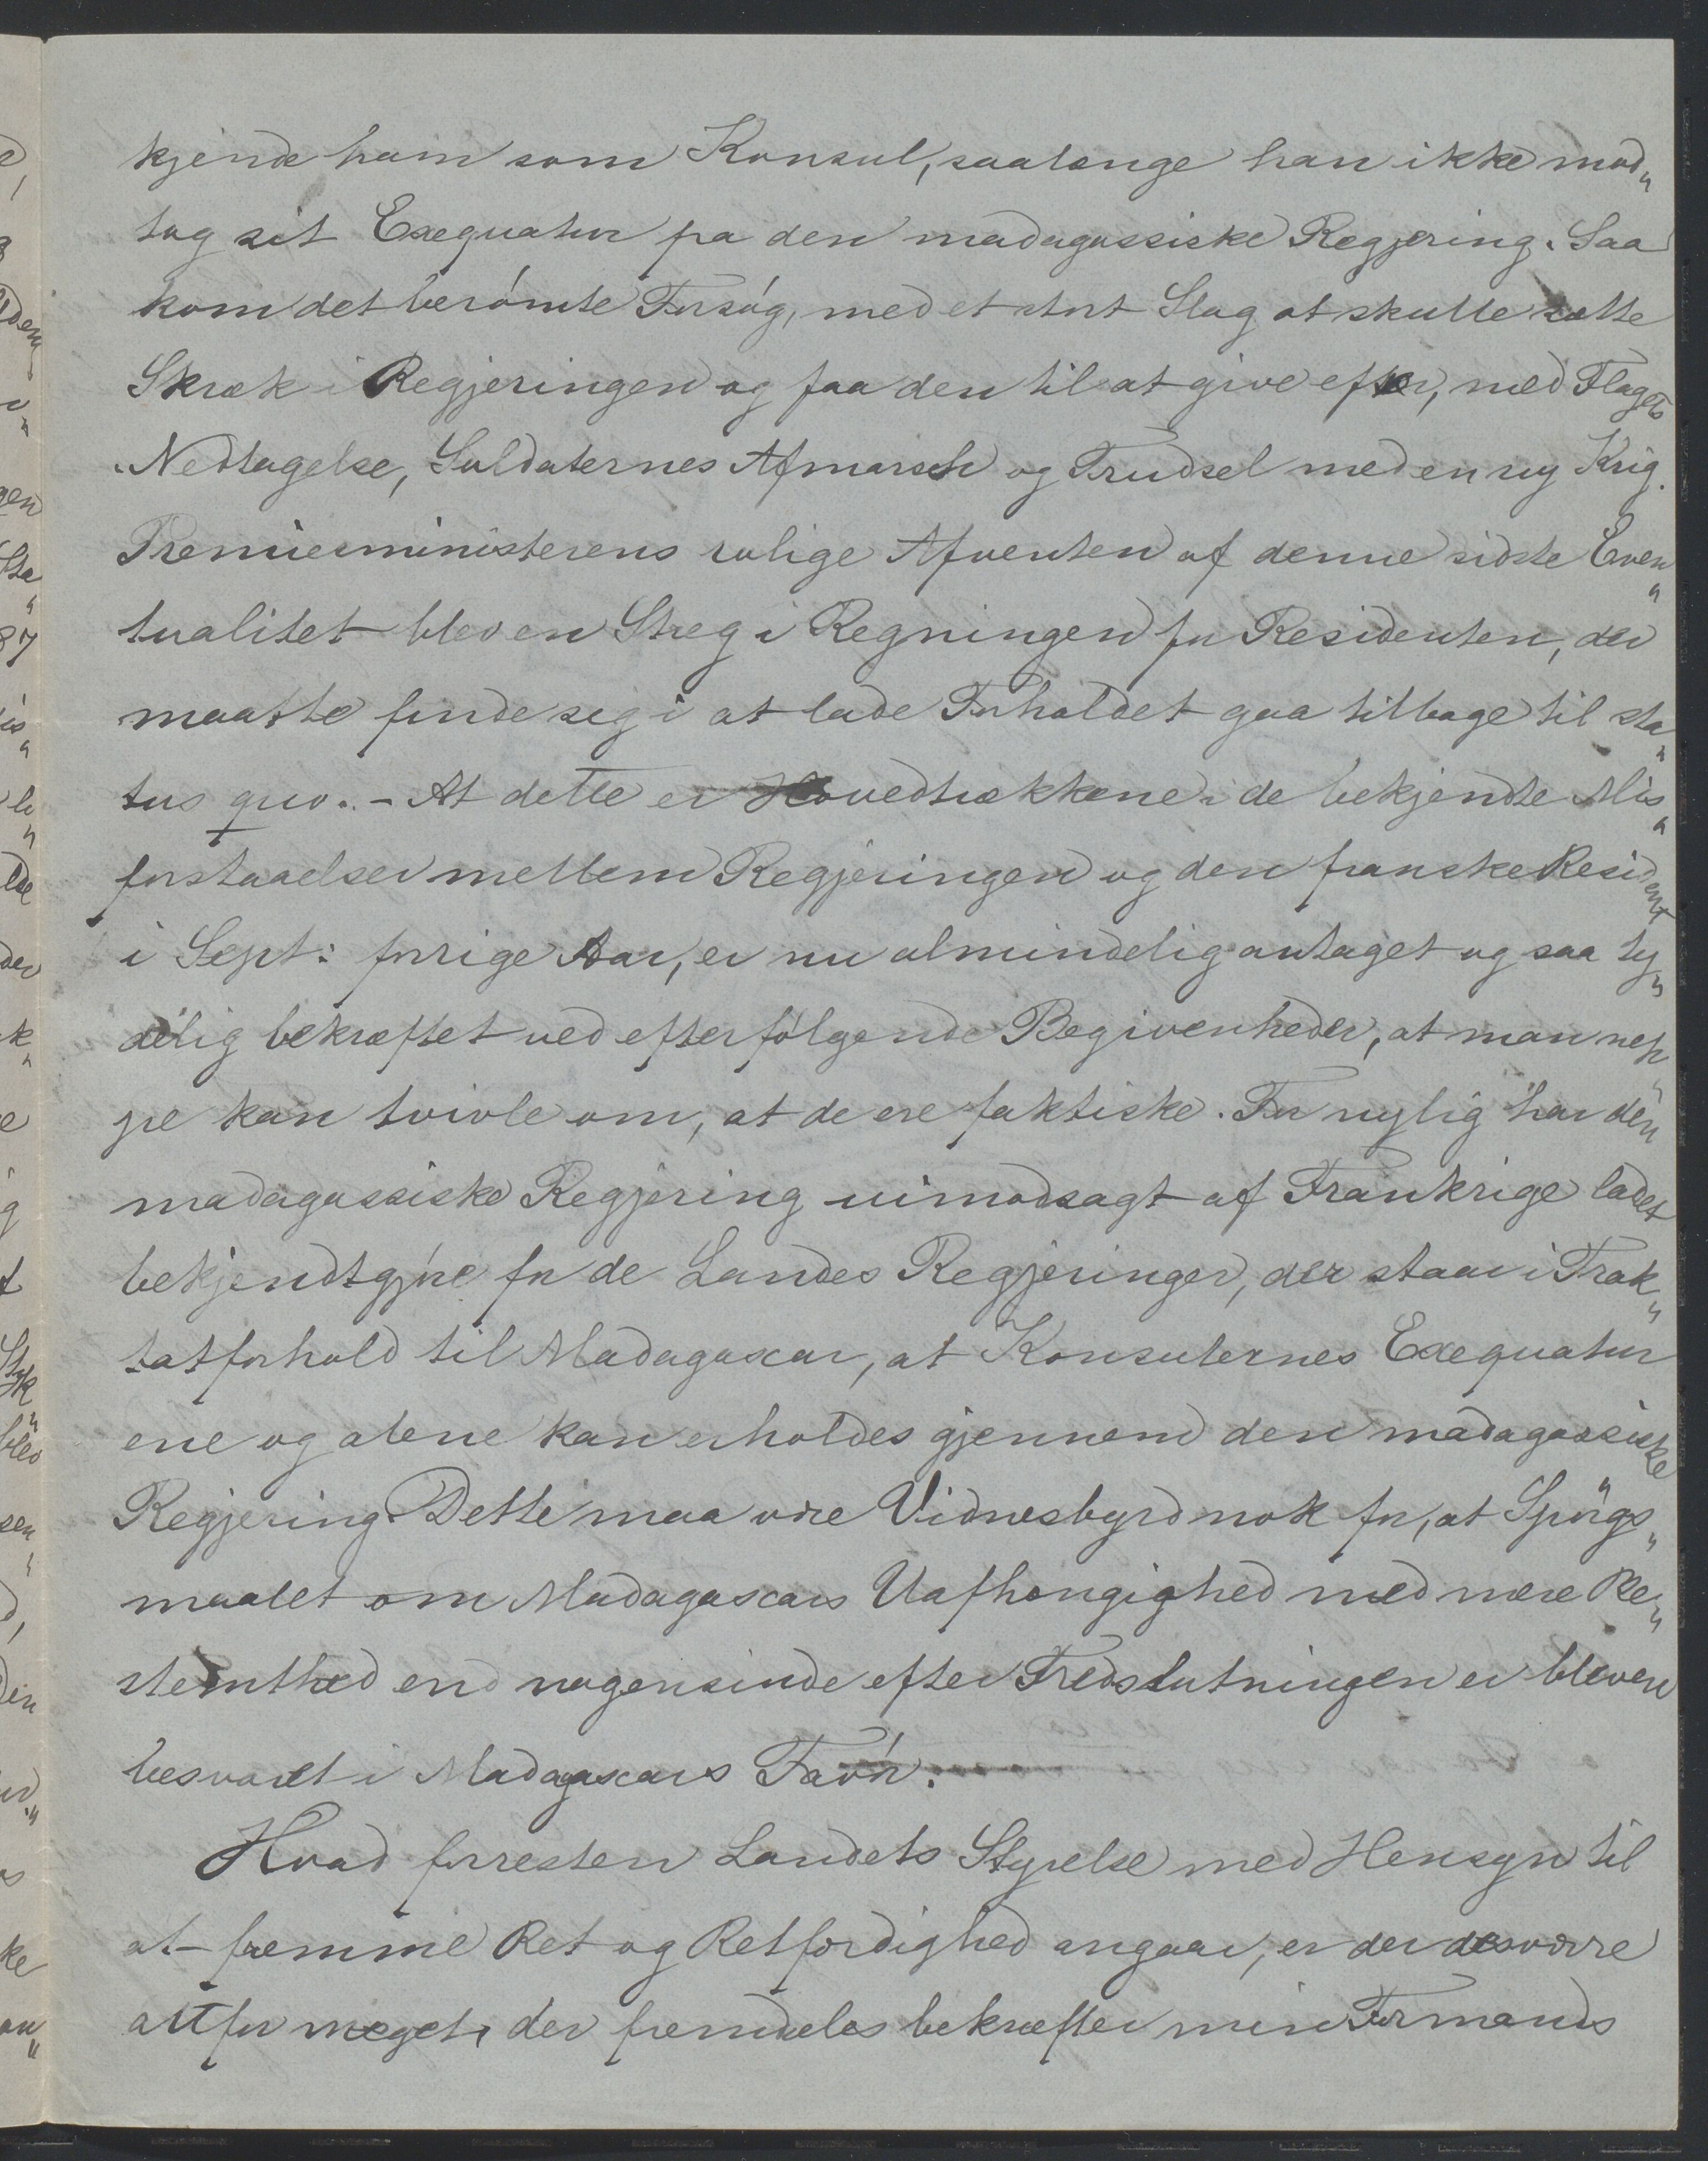 kjende ham som Konsul, saalænge han ikke mod„
tog sit Exequatur fra den madagassiske Regjering. Saa
kom det berómte Forsóg, med et stort Slag at skulle sætte
Skræk i Regjeringen og faa den til at give efter, med Flagets
Nedtagelse, Soldaternes Afmarsch og Trudsel med en ny Krig.
Premierministerens rolige Afventen af denne sidste Even„
tualitet blev en Streg i Regningen for Residenten, der
maatte finde sig i at lade Forholdet gaa tilbage til sta„
tus quo. - At dette er Hovedtrækkene i de bekjendte Mis„
forstaaelser mellem Regjeringen og den franske Resident
i Sept: forrige Aar, er nu almindelig antaget og saa ty„
delig bekræftet ved efterfólgende Begivenheder, at man nep„
pe kan tvivle om, at de ere faktiske. For nylig har den
madagassiske Regjering uimodsagt af Frankrige ladet
bekjendtgjóre for de Landes Regjeringer, der staar i Trak„
tatforhold til Madagascar, at Konsulernes Exequatur
ene og alene kan erholdes gjennem den madagassiske
Regjering. Dette maa være Vidnesbyrd nok for, at Spórgs„
maalet om Madagascars Uafhængighed med mere Be„
stemthed end nogensinde efter Fredslutningen er bleven
besvaret i Madagascars Favór.
Hvad forresten Landets Styrelse med Hensyn til
at fremme Ret og Retfærdighed angaar, er der desværre
altfor meget, der fremdeles bekræfter min Formands